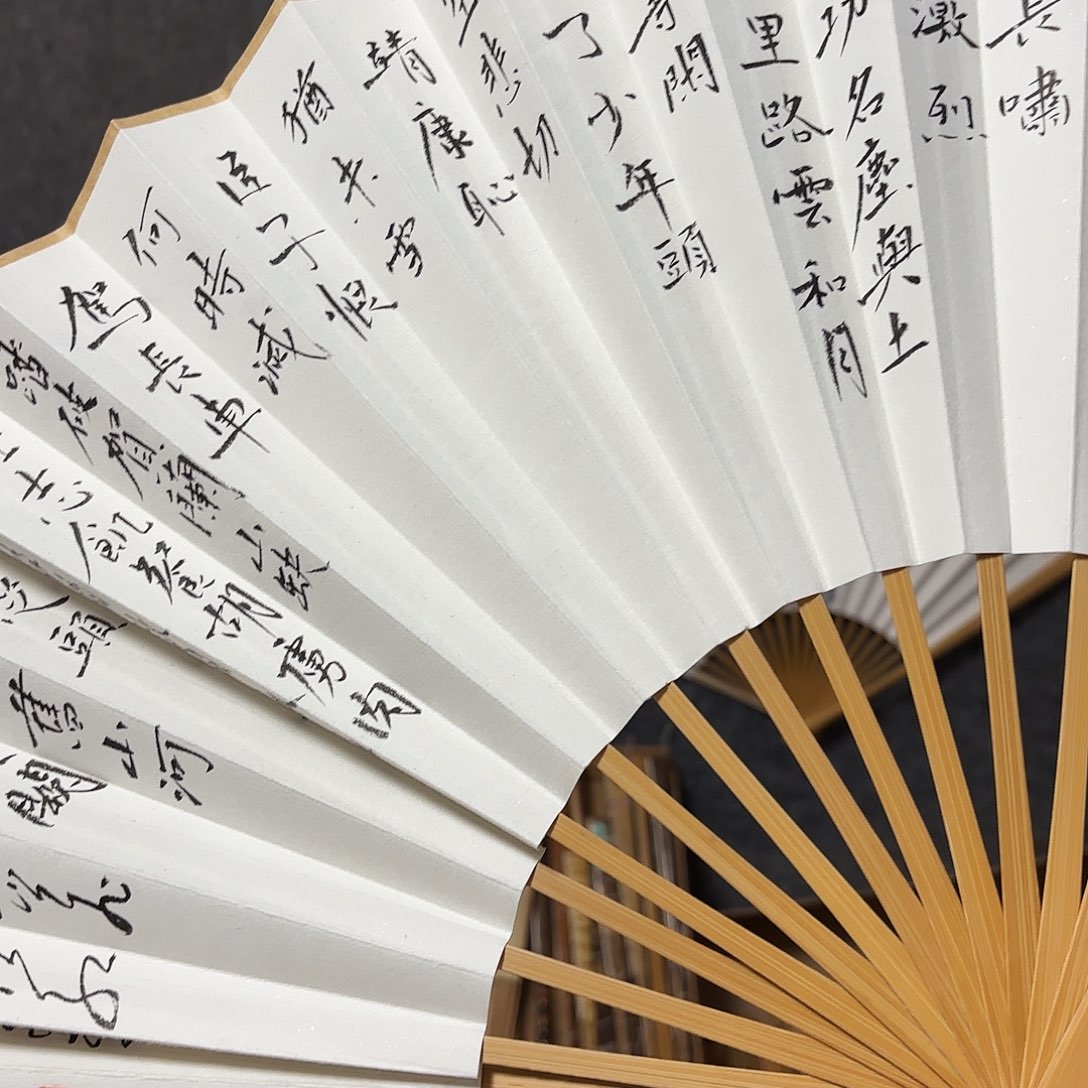 長嘯
激烈
功名塵與土
里路雲和月
等閒
了少年頭
悲切
靖康恥
猶未雪
臣子恨
何時滅
駕長車
踏破賀蘭山缺
志飢餐胡虜肉
頭
舊山河
闕